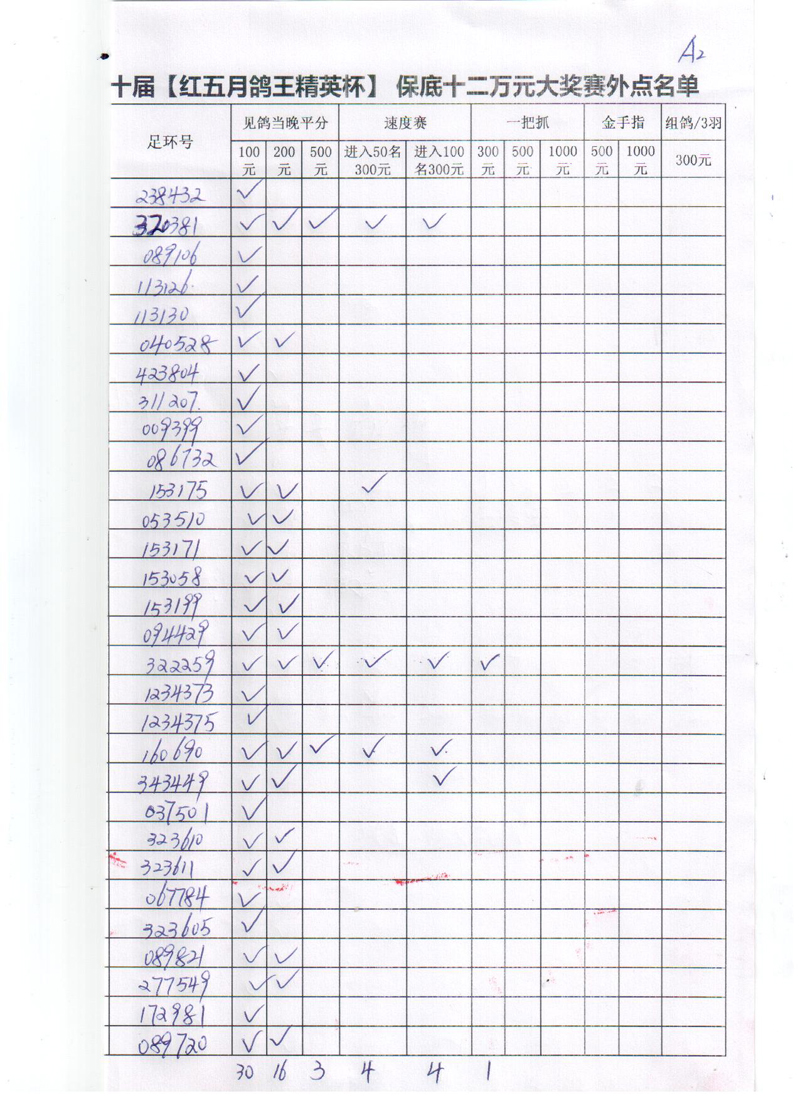 A2
十届【红五月鸽王精英杯】 保底十二万元大奖赛外点名单
足环号 见鸽当晚平分 速度赛 一把抓 金手指 组鸽/3羽
100元 200元 500元 进入50名300元 进入100名300元 300元 500元 1000元 500元 1000元 300元
238432 ✓
320381 ✓ ✓ ✓ ✓ ✓
089106 ✓
113126 ✓
113130 ✓
040528 ✓ ✓
423804 ✓
311207 ✓
009399 ✓
086732 ✓
153175 ✓ ✓ ✓
053510 ✓ ✓
153171 ✓ ✓
153058 ✓ ✓
153199 ✓ ✓
094429 ✓ ✓
322259 ✓ ✓ ✓ ✓ ✓ ✓
1234373 ✓
1234375 ✓
160690 ✓ ✓ ✓ ✓ ✓
343449 ✓ ✓ ✓
037501 ✓
323610 ✓ ✓
323611 ✓ ✓
067784 ✓
323605 ✓
089821 ✓ ✓
277549 ✓ ✓
172981 ✓
089720 ✓ ✓
30 16 3 4 4 1